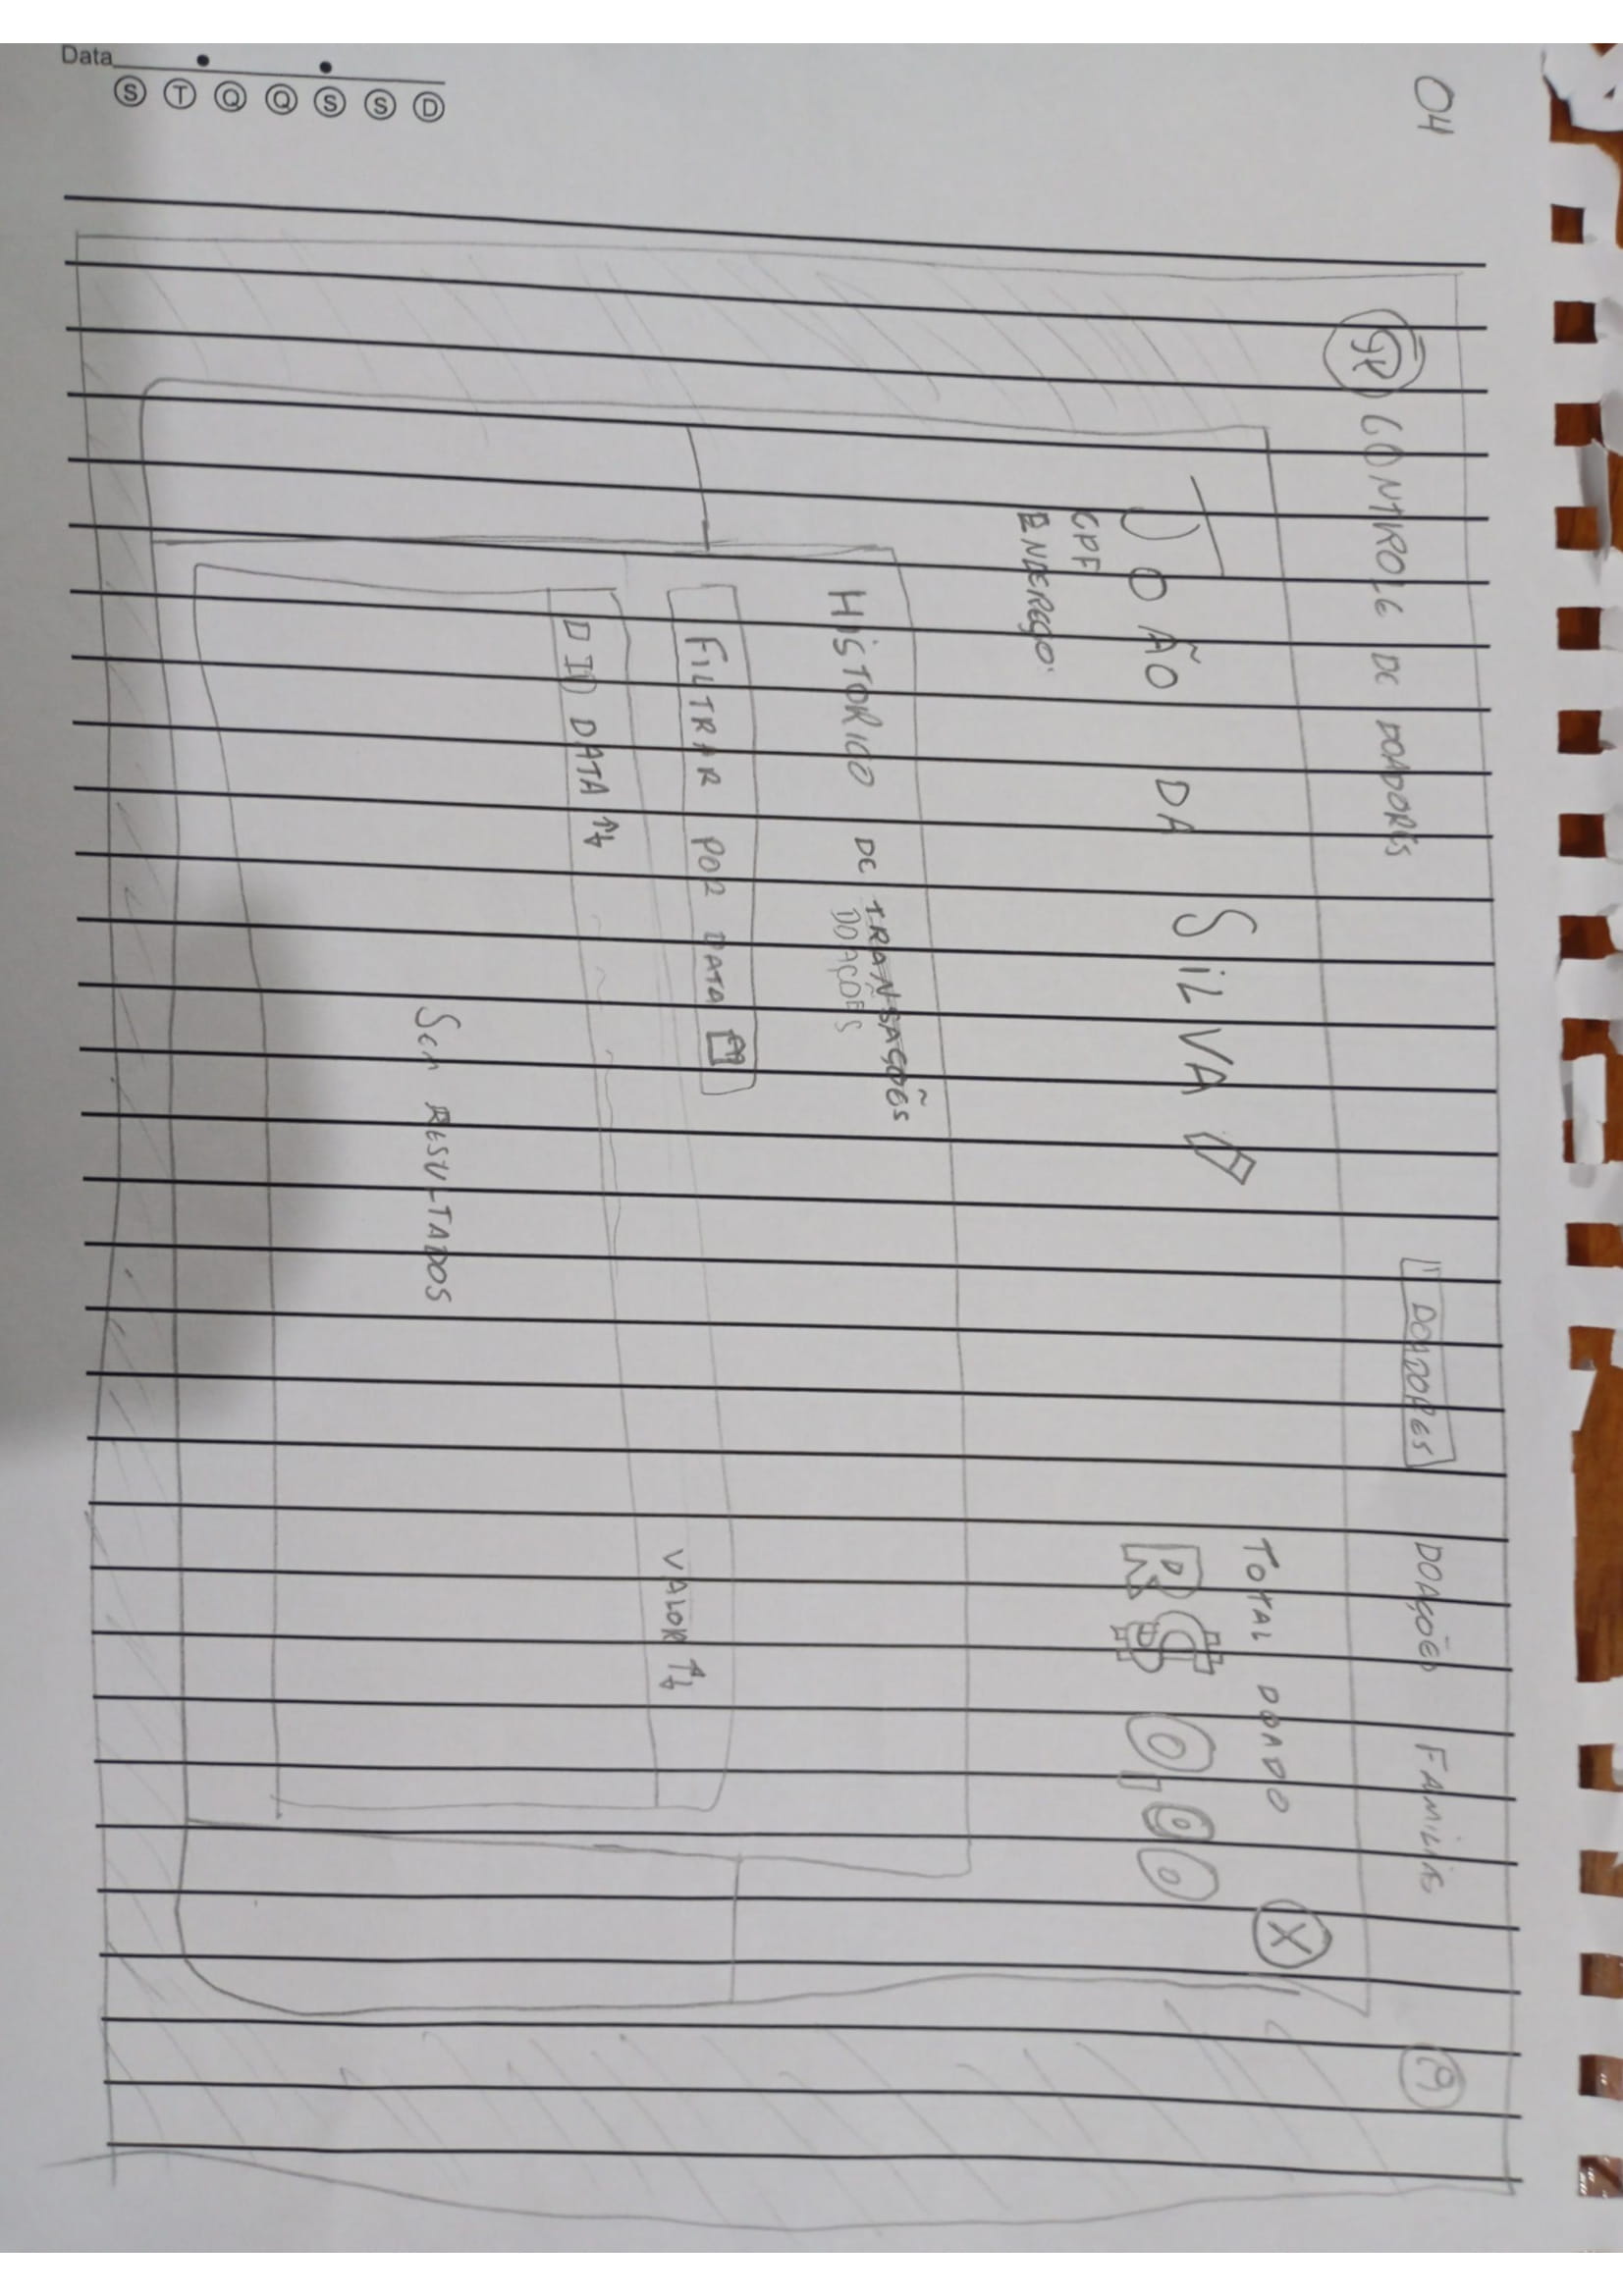 Data
S T Q Q S S D
04
JR CONTROLE DE DOADORES
DOADORES
DOAÇÕES
FAMILIAS
JOÃO DA SILVA
CPF
ENDEREÇO:
TOTAL DOADO
X
R$ 0,00
HISTÓRICO DE TRANSAÇÕES
DOAÇÕES
FILTRAR POR DATA
ID DATA ↑↓
VALOR ↑↓
SEM RESULTADOS